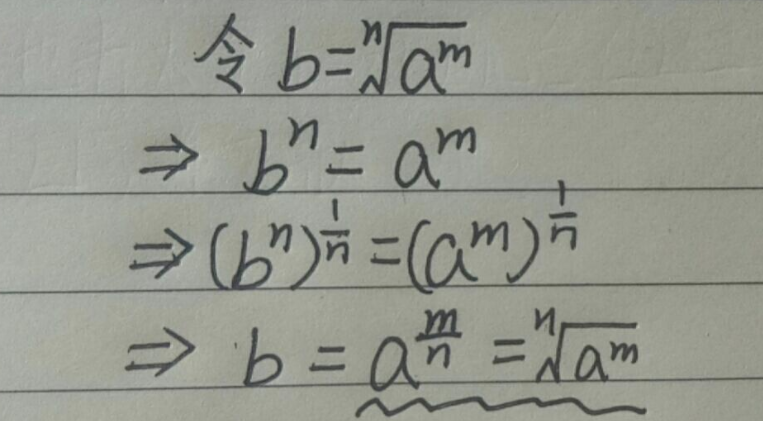 令 b=ⁿ√(aᵐ)
⇒ bⁿ = aᵐ
⇒ (bⁿ)^(1/n) = (aᵐ)^(1/n)
⇒ b = a^(m/n) = ⁿ√(aᵐ)